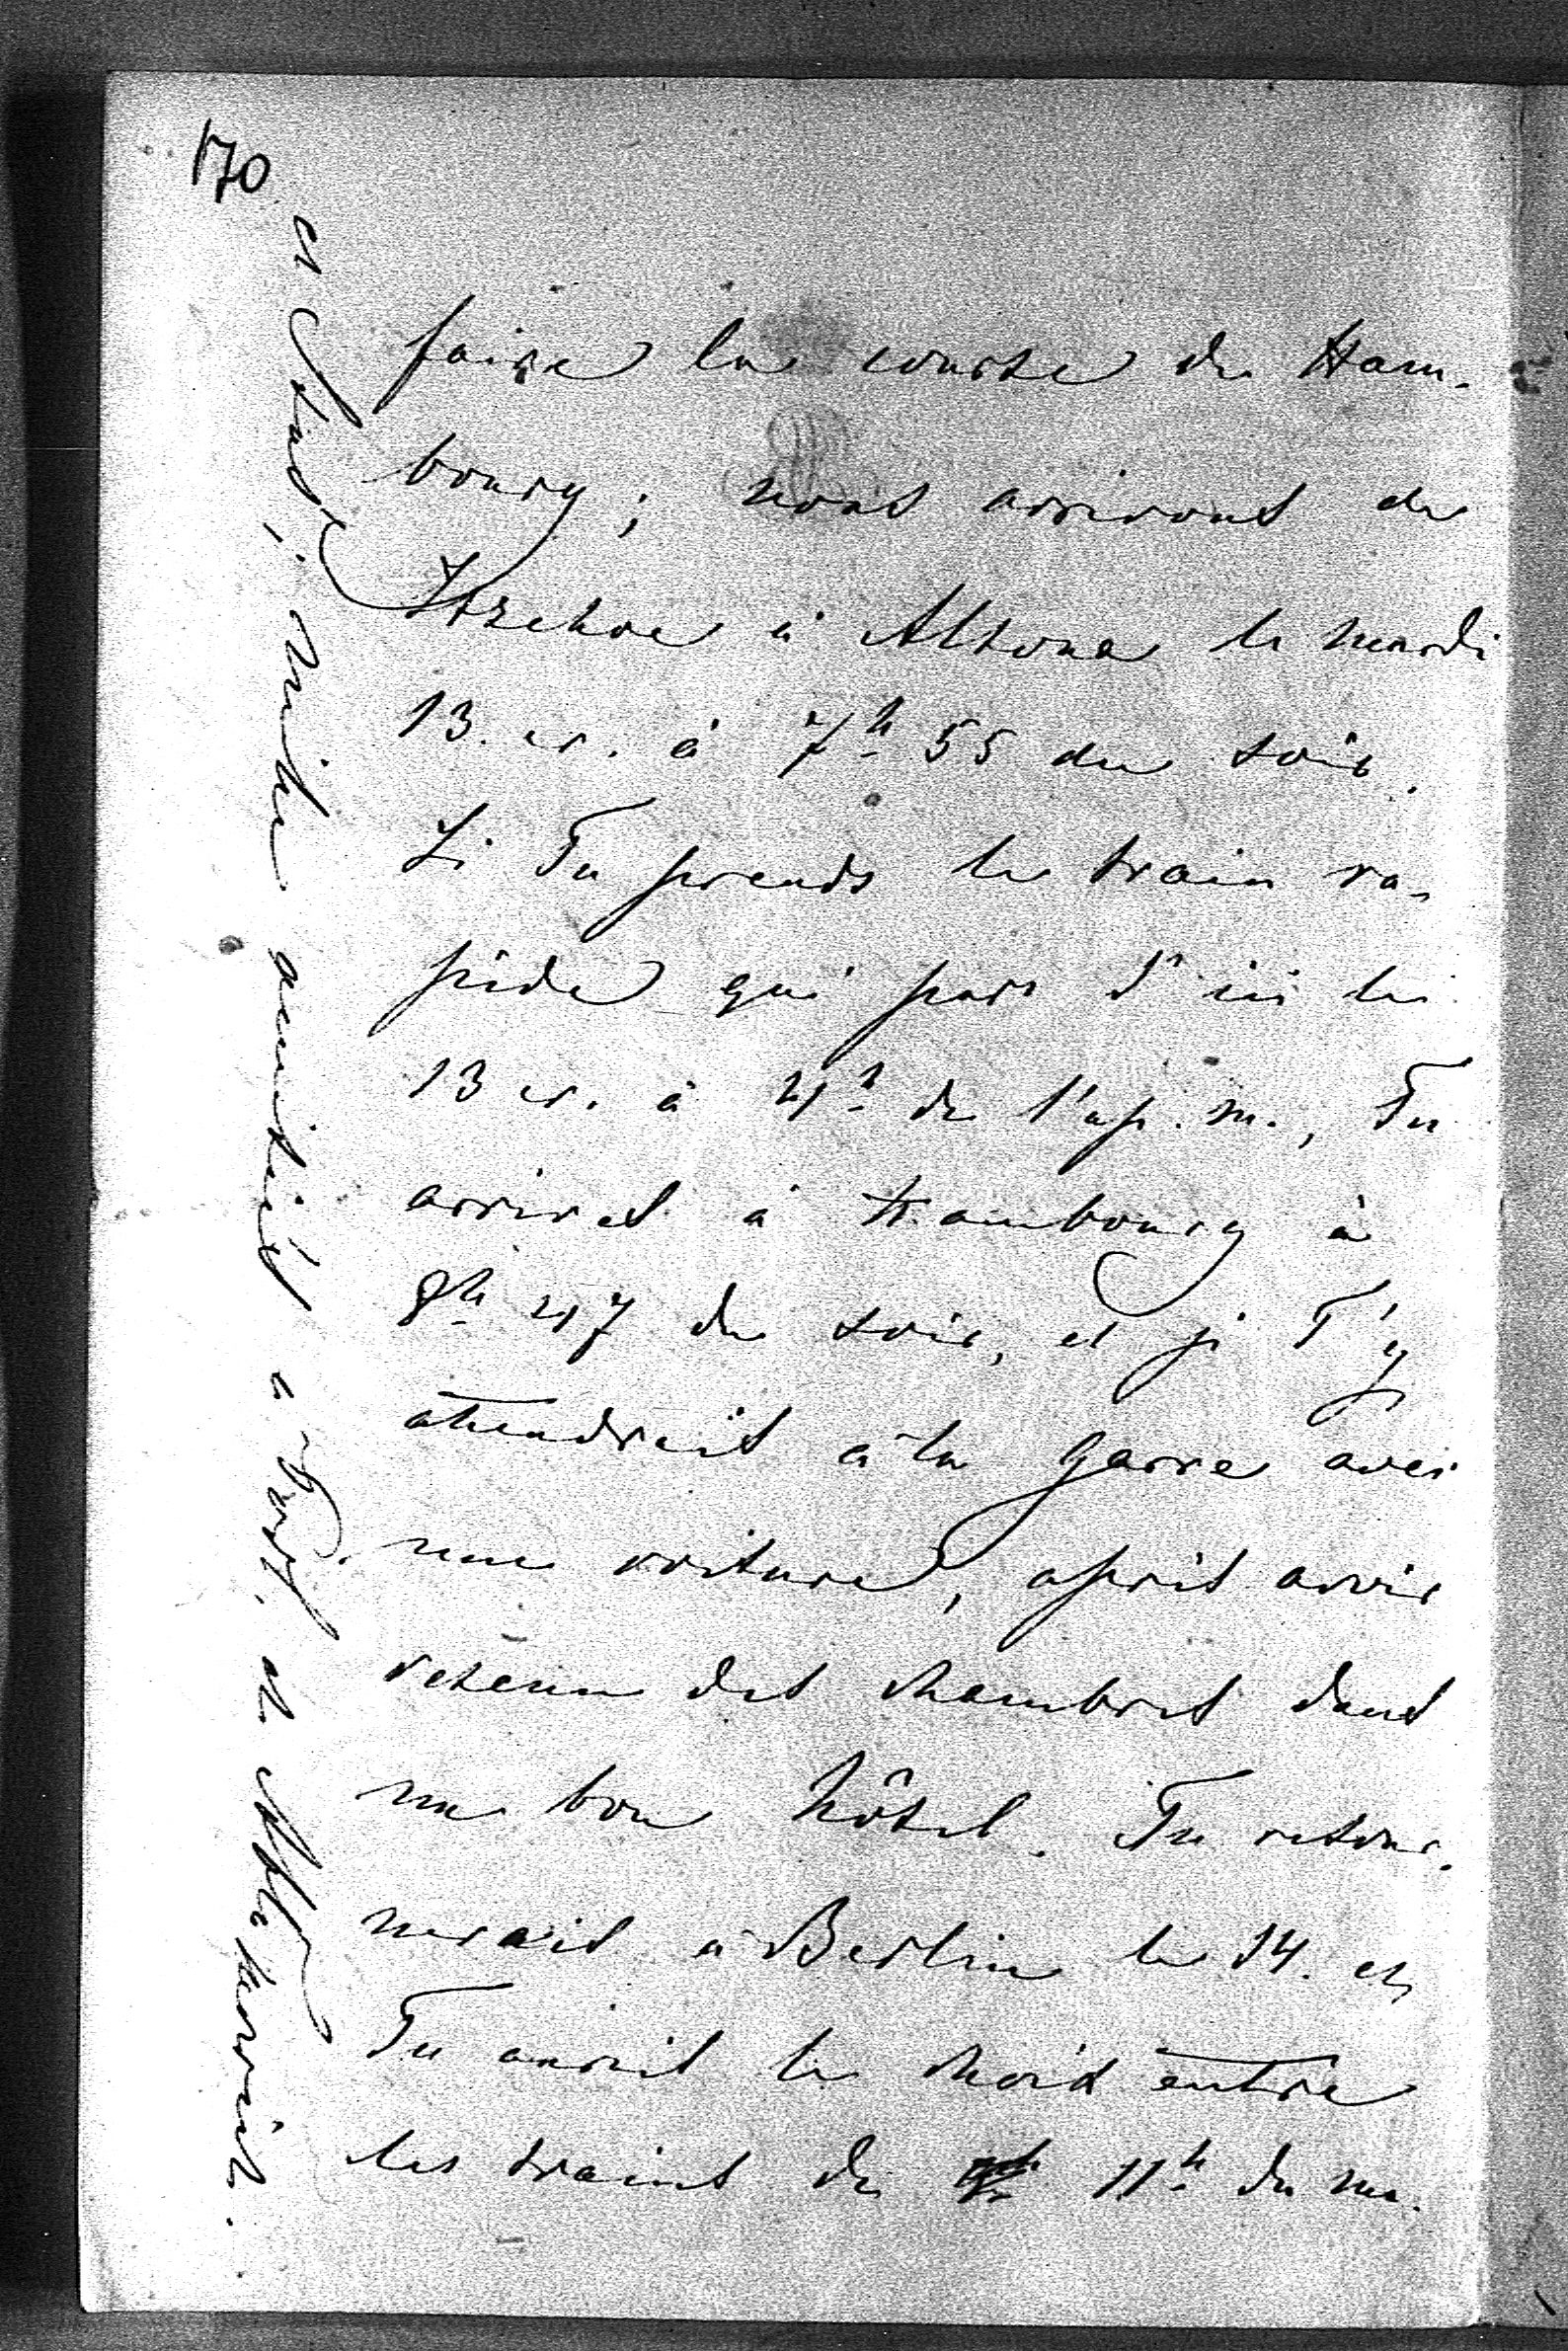 170
faire la course de Ham-
bourg; nous arrivons de
Itzehoe à Altona le mardi
13. cr. à 7h 55 du soir.
Si Tu prends le train ra-
pide qui part d'ici le
13 cr. à 4h de l'ap. m., Tu
arrives à Hambourg à
8h 47 du soir, et je T'y
attendrais à la garre avec
une voiture, après avoir
retenu des chambres dans
un bon hôtel. Tu retour-
nerais à Berlin le 14. et
Tu aurais le choix entre
les trains de 11h du ma-
et mille amitiés à de